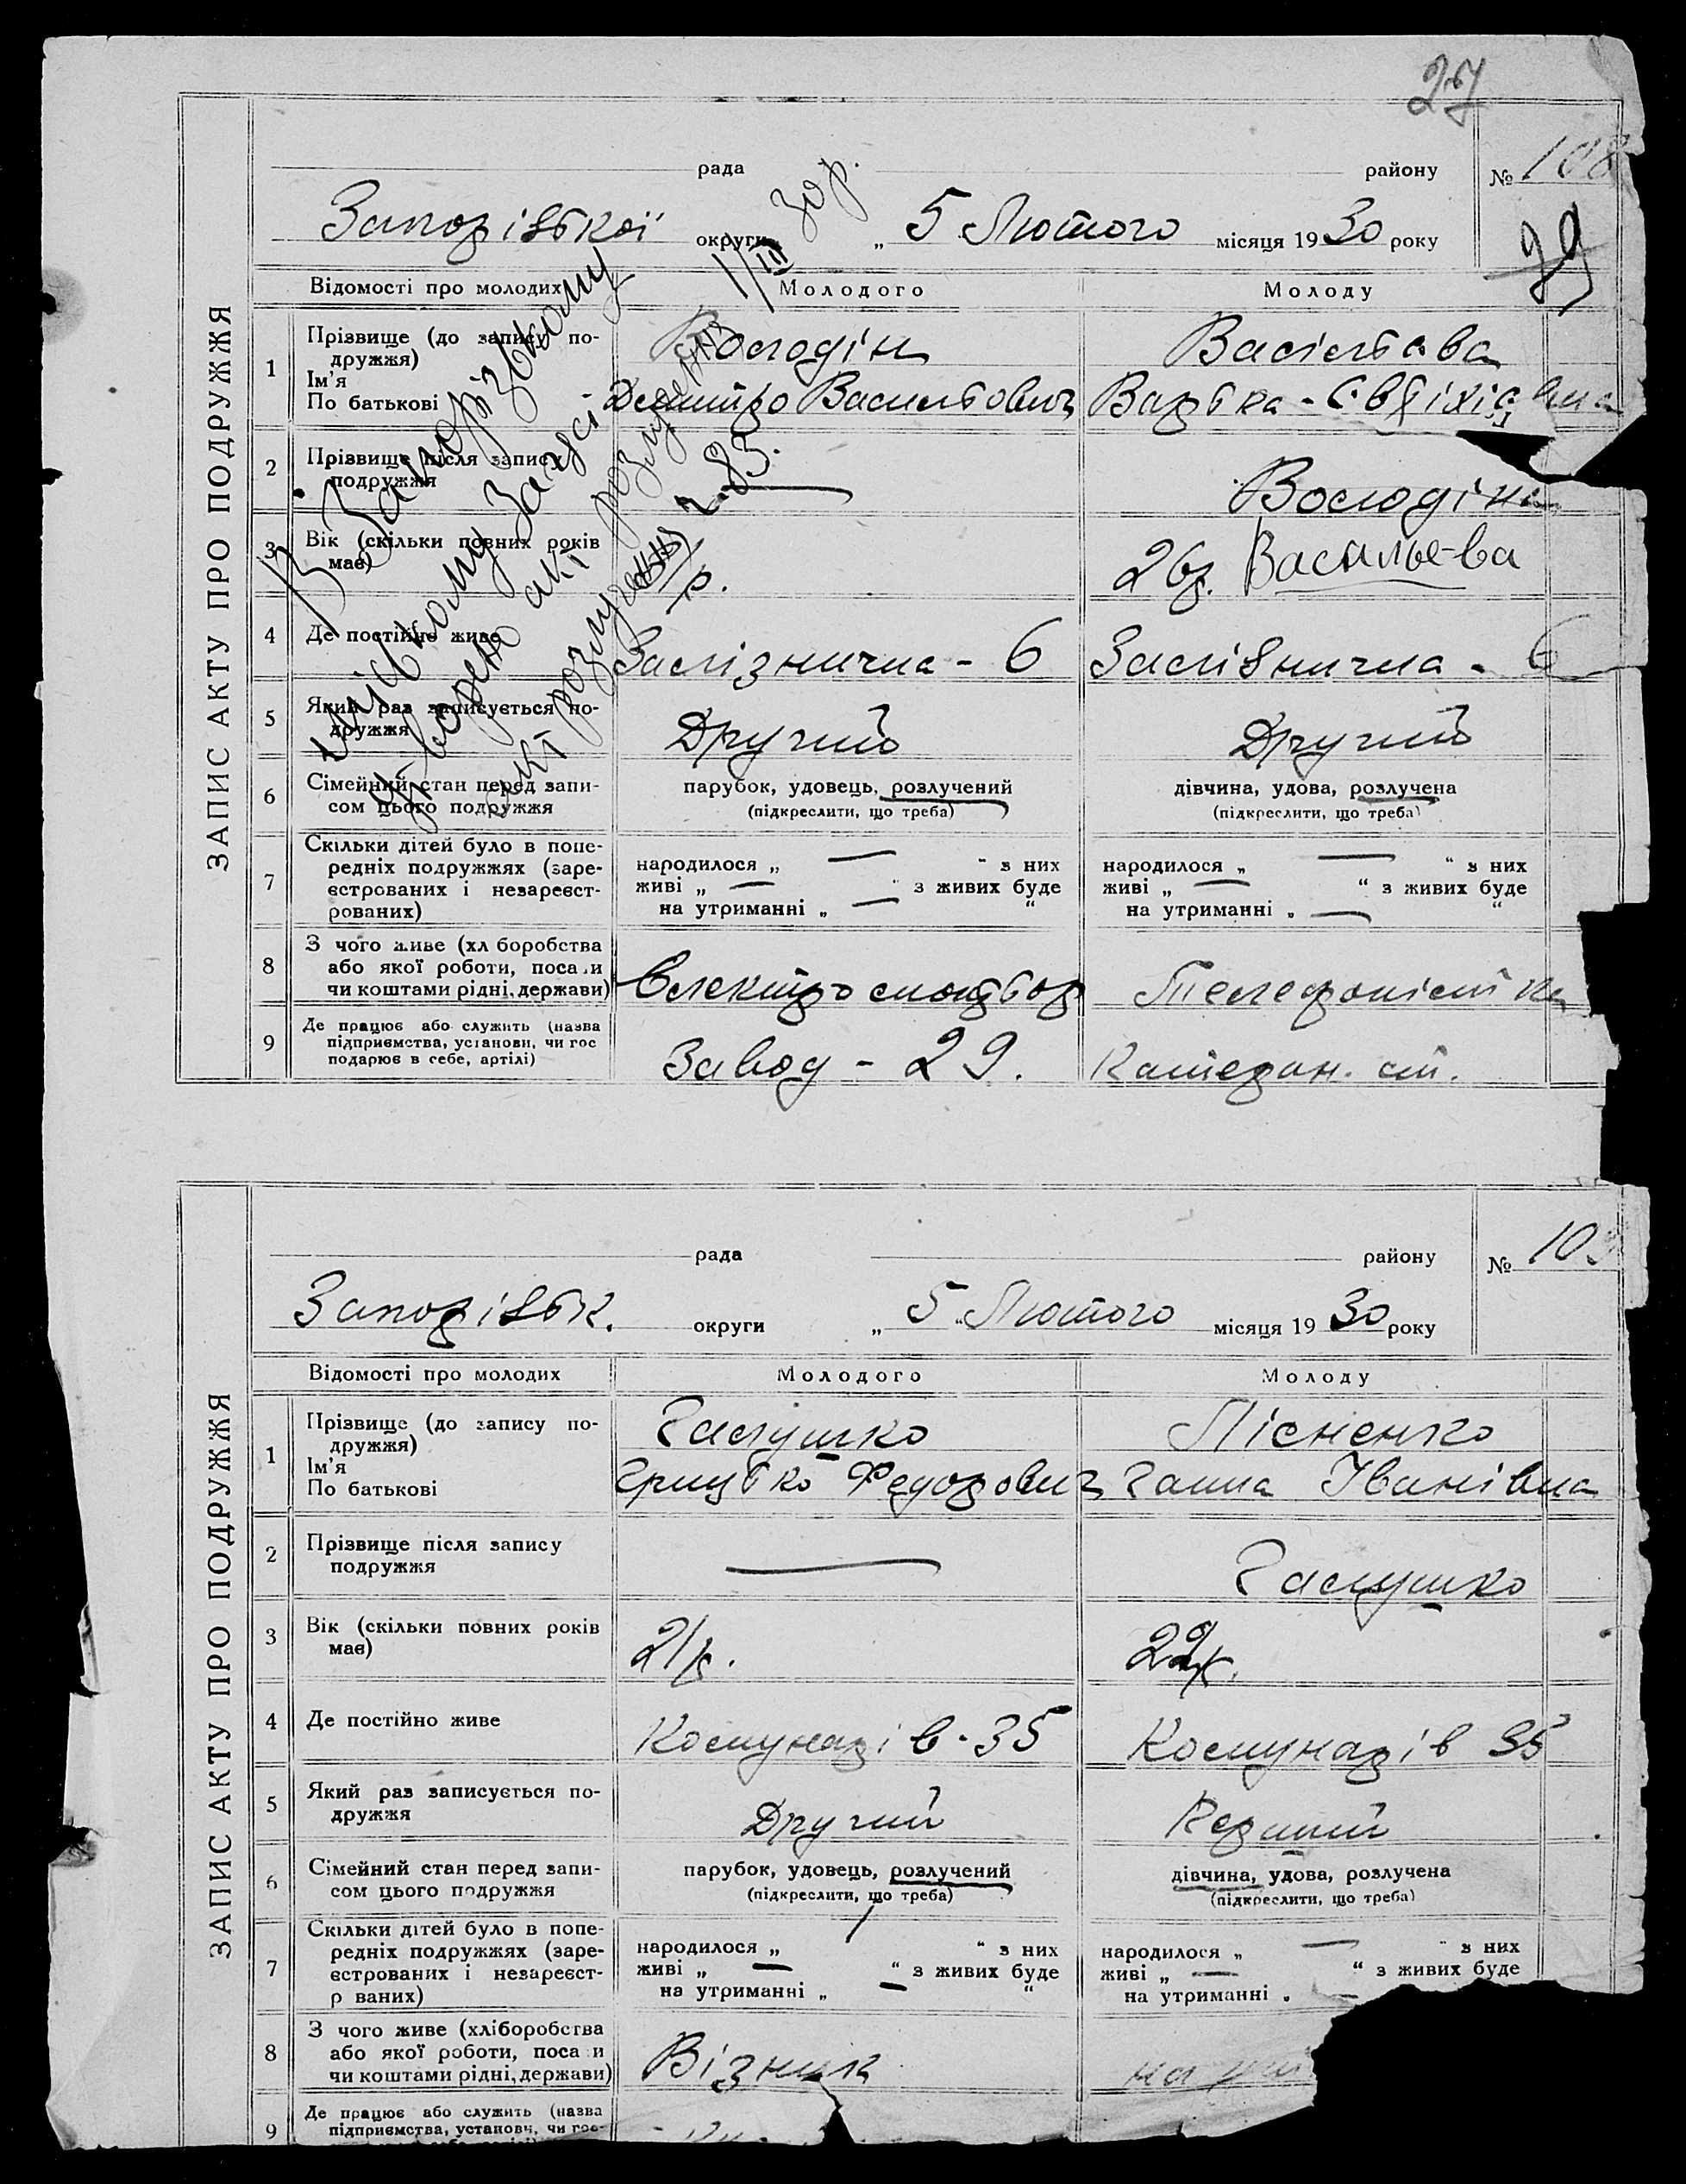 27
ЗАПИС АКТУ ПРО ПОДРУЖЖЯ
рада
району
№ 108
Запорізької округи „ 5 Лютого місяця 1930 року
79
Відомості про молодих
Молодого
Молоду
1
Прізвище (до запису по-
дружжя)
Ім’я
По батькові
Володін
Дмитро Васильович
Васільєва
2
Прізвище після запису
подружжя
Володіна
3
Вік (скільки повних років
має)
р.
26р. Васильева
4
Де постійно живе
Залізнична - 6
Залізнична - 6
5
Який раз записується по-
дружжя
Другий
Другий
6
Сімейний стан перед запи-
сом цього подружжя
парубок, удовець, розлучений
(підкреслити, що треба)
дівчина, удова, розлучена
(підкреслити, що треба)
7
Скільки дітей було в попе-
редніх подружжях (заре-
єстрованих і незареєст-
рованих)
народилося „ — “ з них
живі „ — “ з живих буде
на утриманні „ — “
народилося „ — “ з них
живі „ — “ з живих буде
на утриманні „ — “
8
З чого живе (хл боробства
або якої роботи, поса и
чи коштами рідні, держави)
Електромонтьор
Телефоністка
9
Де працює або служить (назва
підприємства, установи, чи гос
подарює в себе, артілі)
Завод - 29.
ст.
В Запорізькому
міському Загсі
створено акт розлучення 1/III 30 р.
акт розлучення ч. 83.
ЗАПИС АКТУ ПРО ПОДРУЖЖЯ
рада
району
№ 10
Запорізьк. округи „ 5 “ Лютого місяця 1930 року
Відомості про молодих
Молодого
Молоду
1
Прізвище (до запису по-
дружжя)
Ім’я
По батькові
Галушко
Грицько Федорович
Пісненко
Ганна Іванівна
2
Прізвище після запису
подружжя
—
Галушко
3
Вік (скільки повних років
має)
21р.
22р.
4
Де постійно живе
Комунарів - 35
Комунарів 35
5
Який раз записується по-
дружжя
Другий
Перший
6
Сімейний стан перед запи-
сом цього подружжя
парубок, удовець, розлучений
(підкреслити, що треба)
дівчина, удова, розлучена
(підкреслити, що треба)
7
Скільки дітей було в попе-
редніх подружжях (заре-
єстрованих і незареєст-
р ваних)
народилося „ “ з них
живі „ — “ з живих буде
на утриманні „ — “
народилося „ — “ з них
живі „ — “ з живих буде
на утриманні „ —
8
З чого живе (хліборобства
або якої роботи, поса и
чи коштами рідні, держави)
Візник
на
9
Де працює або служить (назва
підприємства, установи, чи гос-